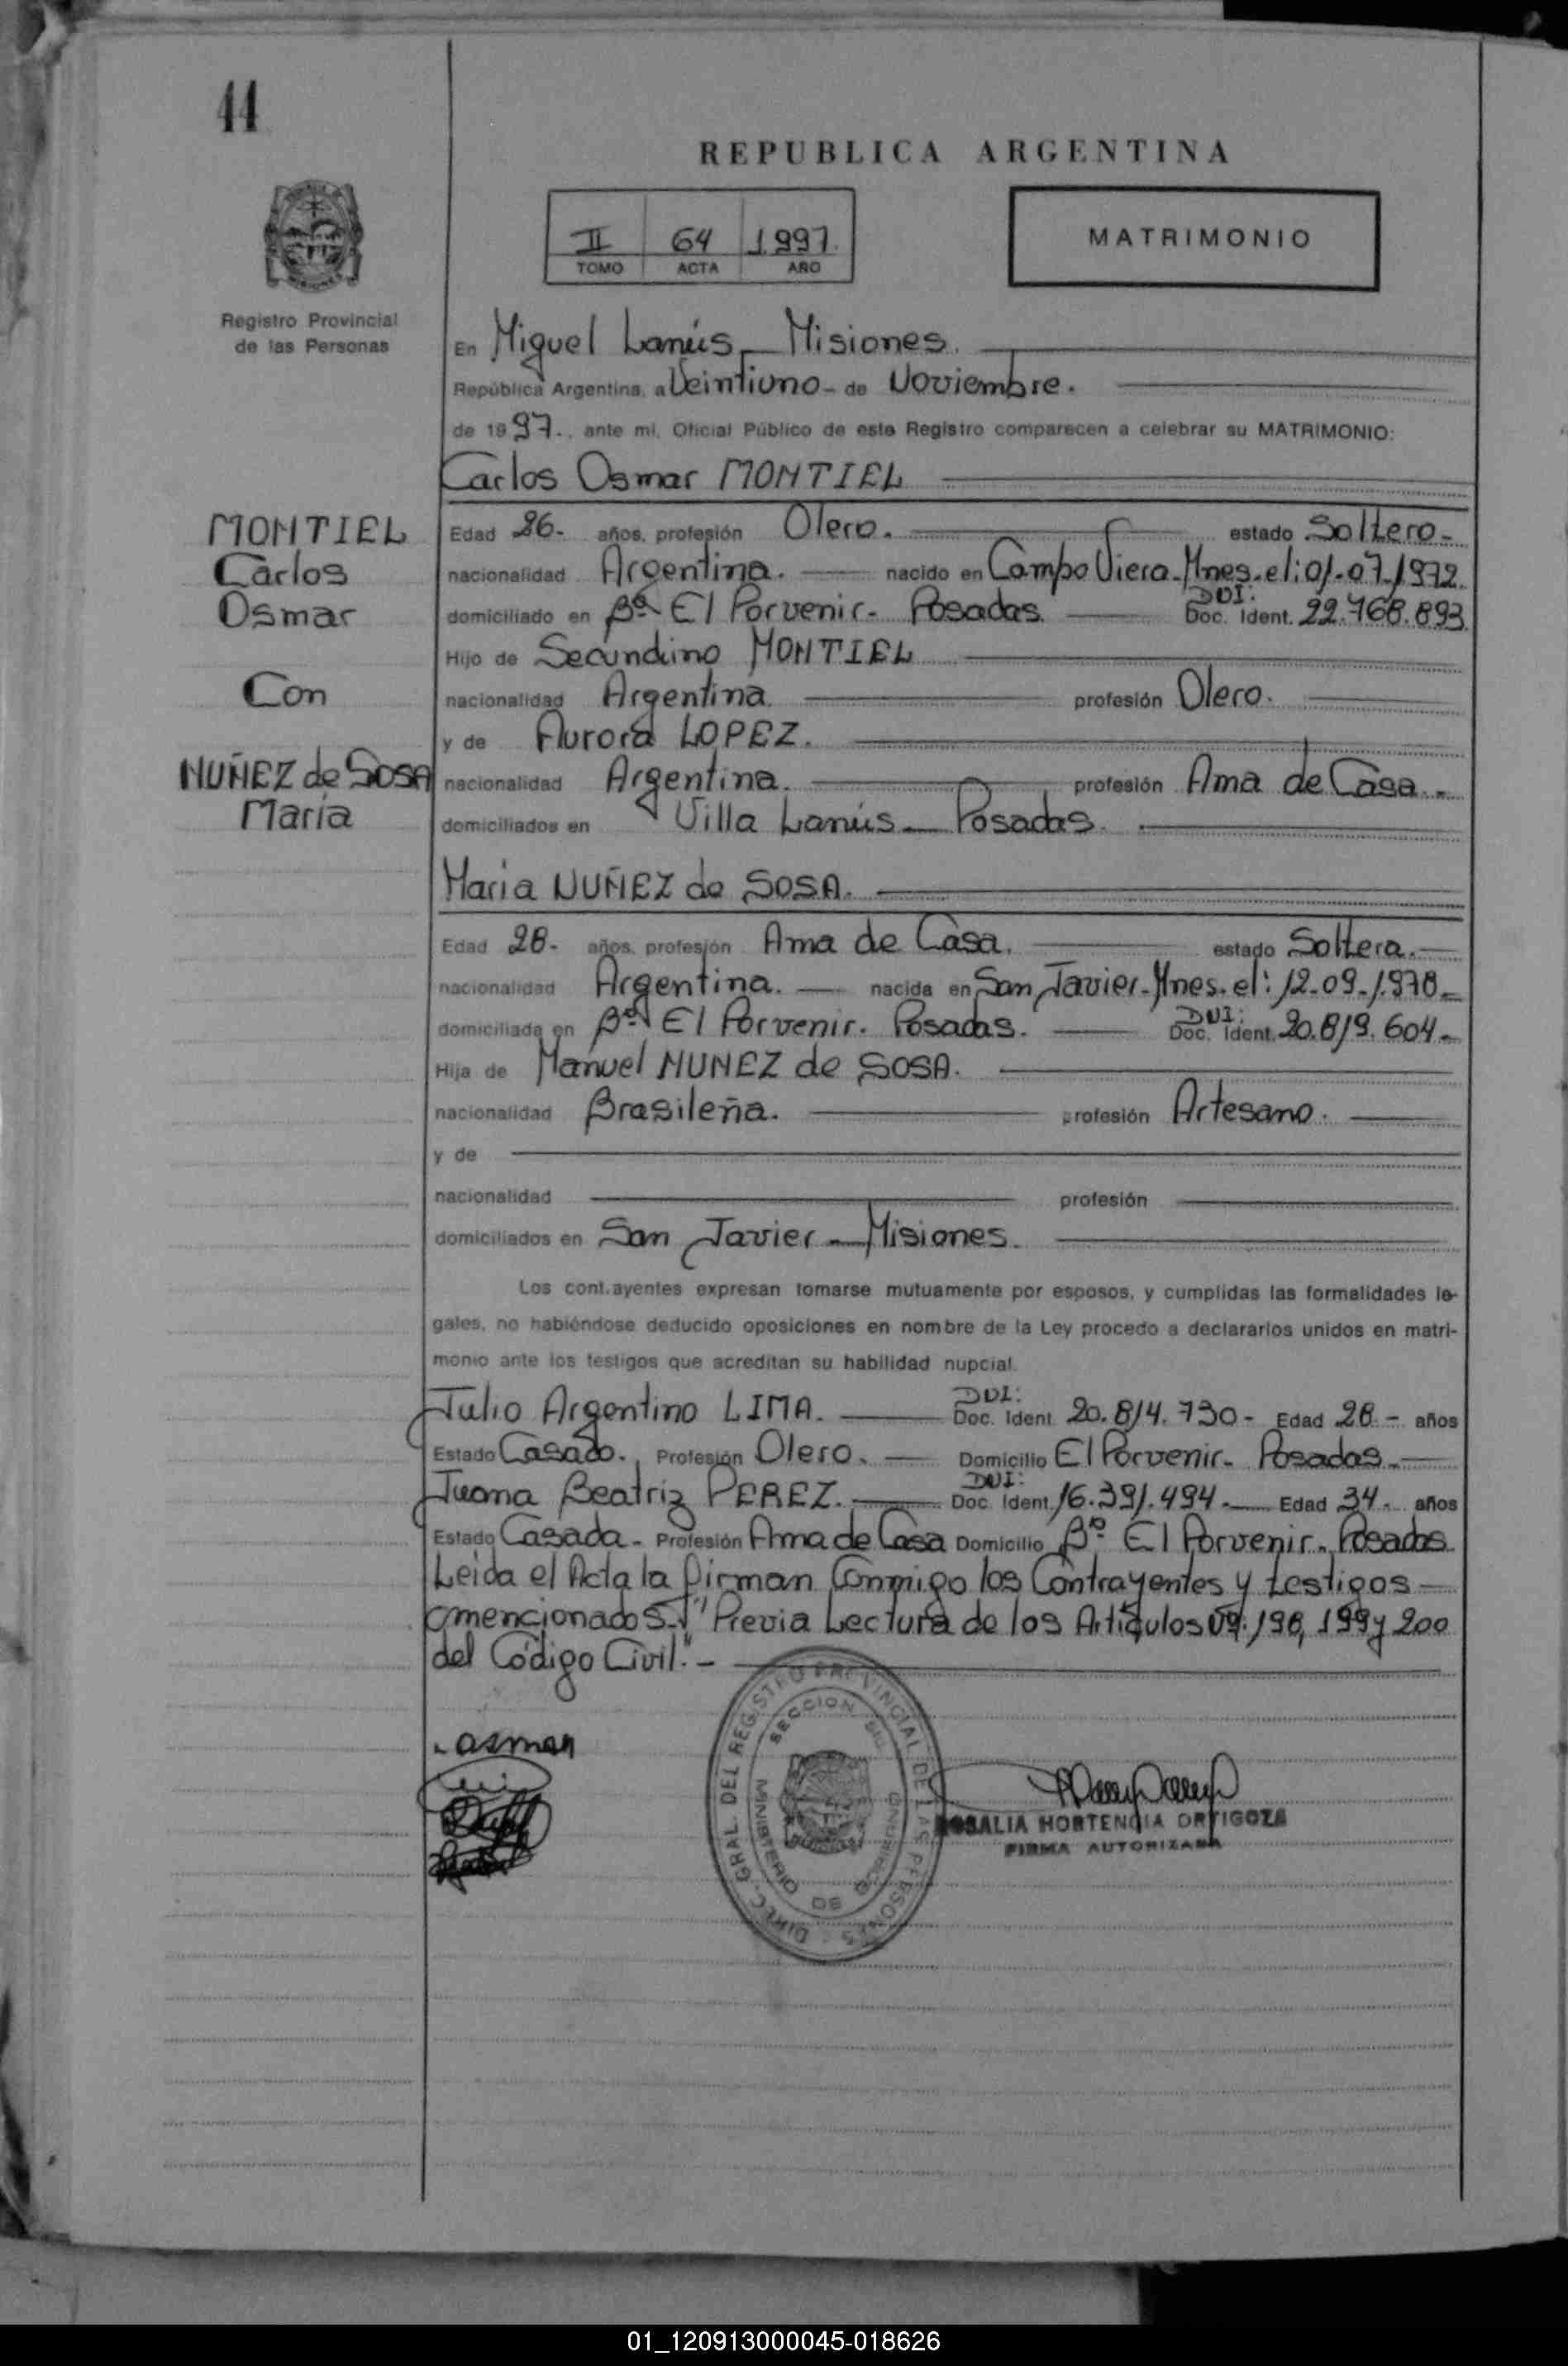 44
REPUBLICA ARGENTINA
II 64 1997.
TOMO ACTA AÑO
MATRIMONIO
Registro Provincial
de las Personas
En Miguel Lanús - Misiones.
República Argentina, a Veintiuno - de Noviembre.
de 1997., ante mi, Oficial Público de este Registro comparecen a celebrar su MATRIMONIO:
Carlos Osmar MONTIEL
MONTIEL
Carlos
Osmar
Con
NUÑEZ de SOSA
María
Edad 26- años, profesión Olero. estado Soltero-
nacionalidad Argentina. nacido en Campo Viera-Mnes.el:01-07-1972.
domiciliado en Bº El Porvenir- Posadas. DNI: Doc. Ident. 22.768.893
Hijo de Secundino MONTIEL
nacionalidad Argentina. profesión Olero.
y de Aurora LOPEZ.
nacionalidad Argentina. profesión Ama de Casa.-
domiciliados en Villa Lanús - Posadas.
Maria NUÑEZ de SOSA.
Edad 28- años, profesión Ama de Casa. estado Soltera.
nacionalidad Argentina. nacida en San Javier-Mnes.el: 12-09-1970-
domiciliada en Bº El Porvenir. Posadas. DNI: Doc. Ident. 20.819.604-
Hija de Manuel NUNEZ de SOSA.
nacionalidad Brasileña. profesión Artesano.
y de
nacionalidad profesión
domiciliados en San Javier - Misiones.
Los cont.ayentes expresan tomarse mutuamente por esposos, y cumplidas las formalidades le-
gales, no habiéndose deducido oposiciones en nombre de la Ley procedo a declararlos unidos en matri-
monio ante los testigos que acreditan su habilidad nupcial.
Julio Argentino LIMA. DNI: Doc. Ident. 20.814.730- Edad 28.- años
Estado Casado. Profesión Olero. Domicilio El Porvenir- Posadas.
Juana Beatriz PEREZ. DNI: Doc. Ident. 16.391.494. Edad 34. años
Estado Casada - Profesión Ama de Casa Domicilio Bº El Porvenir- Posadas.
Leida el Acta la firman Conmigo los Contrayentes y testigos
mencionados.- "Previa Lectura de los Artículos Nº: 198, 199 y 200
del Código Civil."-
DIREC. GRAL. DEL REGISTRO PROVINCIAL DE LAS PERSONAS
SECCION
MINISTERIO DE
ROSALIA HORTENCIA ORTIGOZA
FIRMA AUTORIZADA
01_120913000045-018626